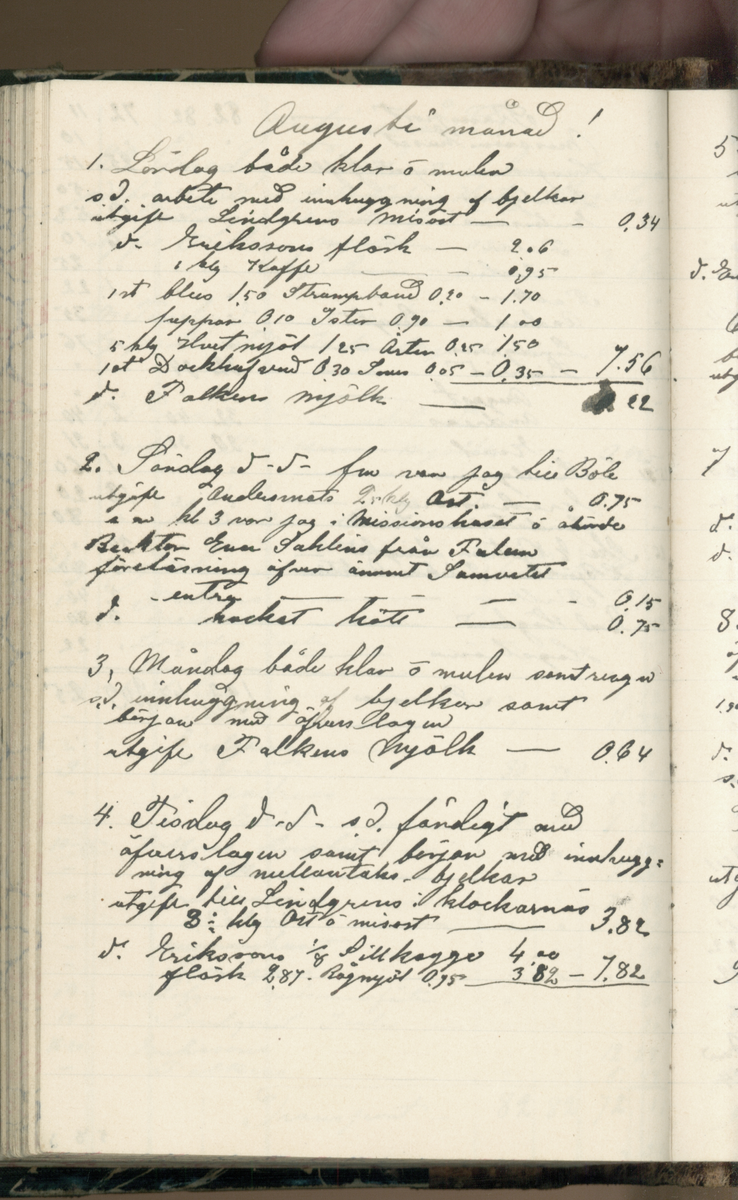 Augusti månad!
1. Lördag både klar o mulen
s.d. arbete med innhuggning af bjelkar
utgift Lindgrens misost — - 0,34
d. Erikssons fläsk — 2.06
1 klg Kaffe — - 0,95
1 st blus 1.50 Strumpband 0,20 - 1.70
0,10 Ister 0,90 — 1.00
5 klg Hvetmjöl 1.25 Ärter 0.25 1.50
1 st Dockhufvud 0.30 Snus 0.05 - 0,35 - 7.56
d. Falkens mjölk — 22
2. Söndag d-d- fm var jag till Böle
utgift Andersmats klg Ost. — 0.75
e m kl 3 var jag i Missionshuset o åhörde
Rektor Sahlins från Falun
föreläsning öfver ämnet Samvetet
- entre — - 0.15
d. hackat kött — 0.75
3, Måndag både klar o mulen samt regn
s.d. innhuggning af bjelkar samt
börjar med öfverslagen
utgift Falkens Mjölk — 0.64
4. Tisdag d-d- s.d. färdigt med
öfverslagen samt börjar med innhugg=
ning af mellantaks-bjelkar
utgift till Lindgrens i klockarnäs
klg Ost o misost — 3.82
d. Erikssons 1/8 Sillkagge 4.00
fläsk 2.87. Rågmjöl 0,95 3.82 - 7.82